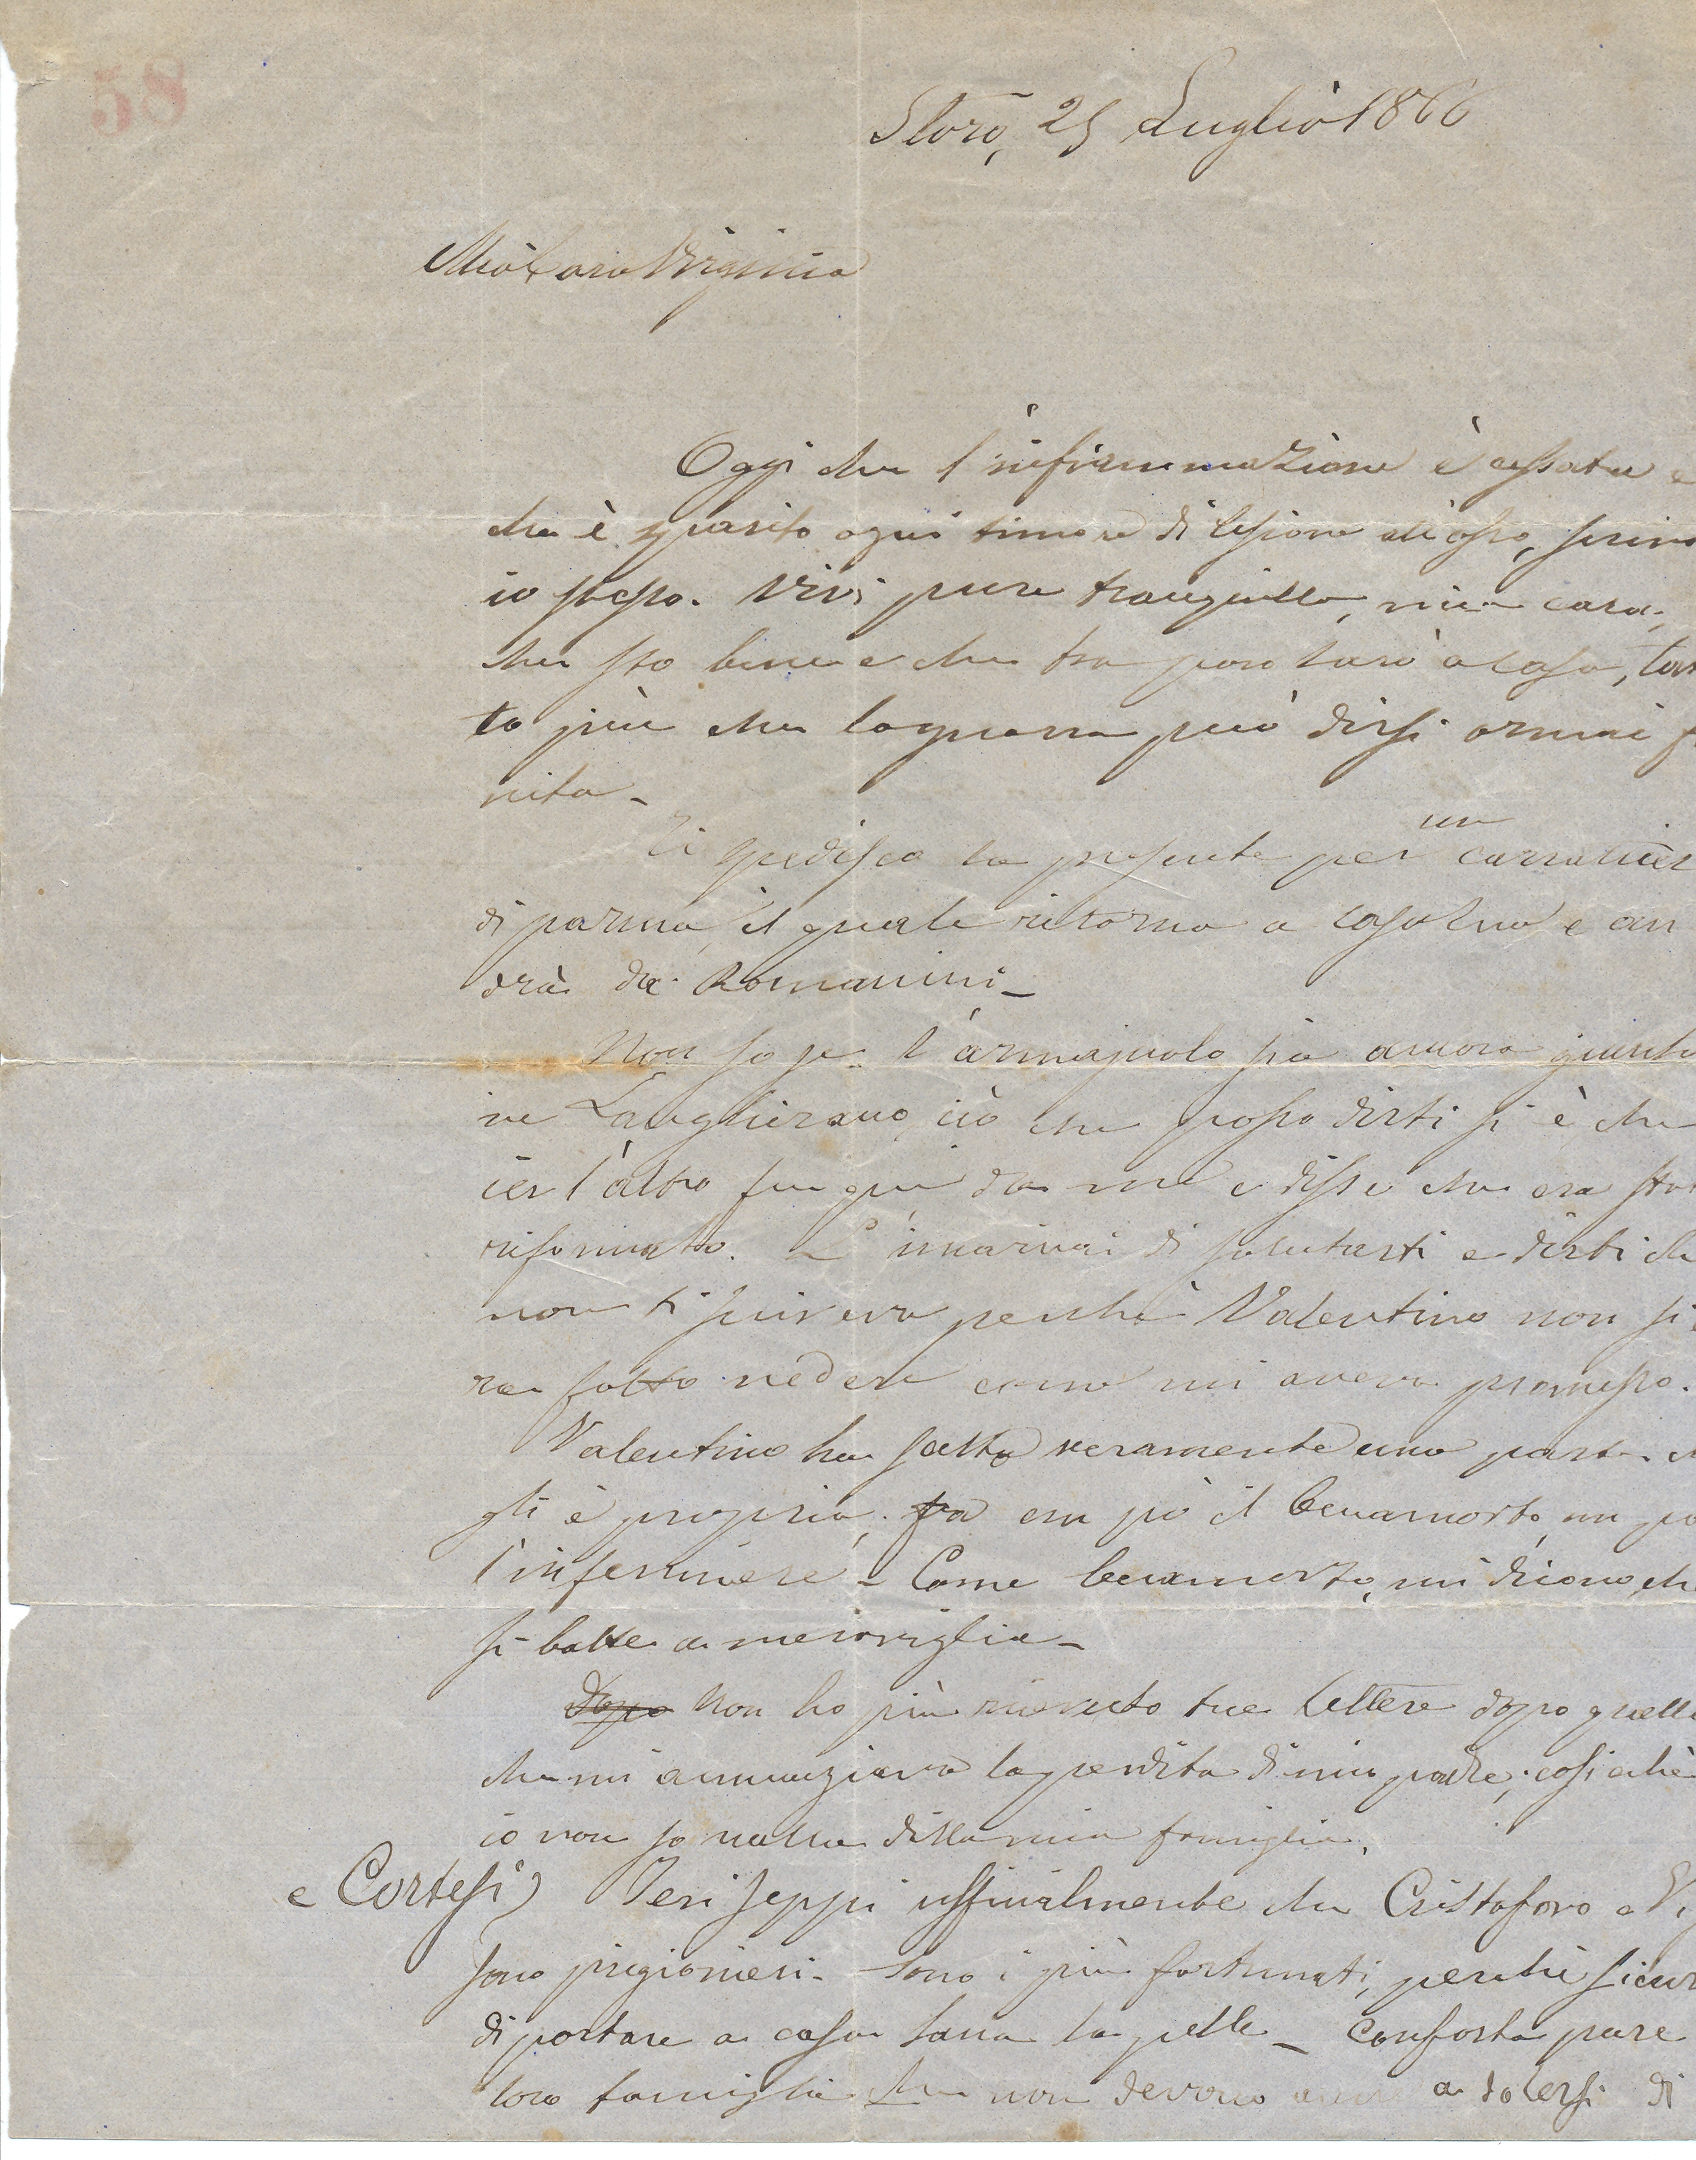 58
Storo, 25 Luglio 1866
Mia Cara Virginia
Oggi che l'infiammazione è cessata e
che è sparito ogni timore di lesione di osso, scrivo
io stesso. Vivi pure tranquilla, mia cara,
che sto bene e che tra poco sarò a casa, tan
to più che la guerra può dirsi ormai fi
nita -
Ti spedisco la presente per un
di parma, il quale ritorna a casa sua e an
drà da Romanini -
Non so se l'armajuolo sia ancora giunto
in Langhirano, ciò che posso dirti si è che
ier l'altro fu qui da me e disse che era sta
riformato. L'incaricai di salutarti e dirti che
non ti scriveva perchè Valentino non si e
ra fatto vedere come mi aveva promesso.
Valentino ha fatto veramente una parte
gli è propria; fa un pò il beccamorto, un po
l'infermiere - Come beccamorto, mi dicono, che
si batte a meraviglia -
Dopo Non ho più ricevuto tue lettere dopo quella
che mi annunziava la perdita di mio padre; cosicchè
io non so nulla della mia famiglia.
e Cortesi) Ieri seppi uffizialmente che Cristoforo e Vi
sono prigionieri - Sono i più fortunati, perchè sicuri
di portare a casa sana la pelle - Conforta pure
loro famiglie che non devono a dolersi di